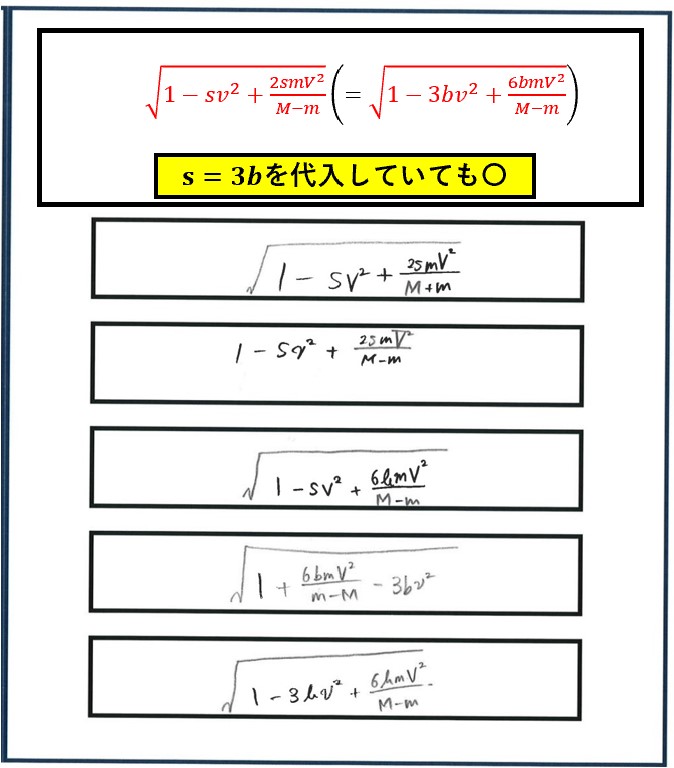 √(1 − sv² + 2smV²/(M−m)) (= √(1 − 3bv² + 6bmV²/(M−m)))
s = 3bを代入していても〇
√(1 − sv² + 2smV²/(M+m))
1 − sv² + 2smV²/(M−m)
√(1 − sv² + 6bmV²/(M−m))
√(1 + 6bmV²/(m−M) − 3bv²)
√(1 − 3bv² + 6bmV²/(M−m))